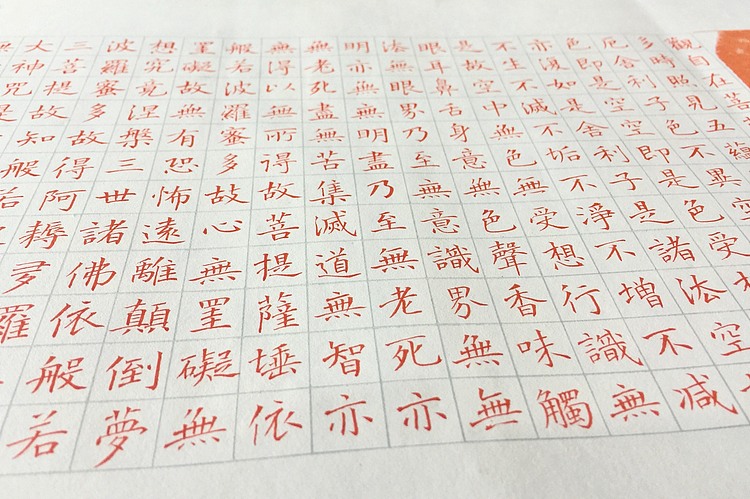 觀自在菩
多時照見五蘊
厄舍利子色不異空
色即是空空即是色受
亦復如是舍利子是諸法空
不生不滅不垢不淨不增不減
是故空中無色無受想行識無
眼耳鼻舌身意無色聲香味觸
法無眼界乃至無意識界無無
明亦無無明盡乃至無老死亦
無老死盡無苦集滅道無智亦
無得以無所得故菩提薩埵依
般若波羅蜜多故心無罣礙無
罣礙故無有恐怖遠離顛倒夢
想究竟涅槃三世諸佛依般若
波羅蜜多故得阿耨多羅
三菩提故知般若
大神咒是